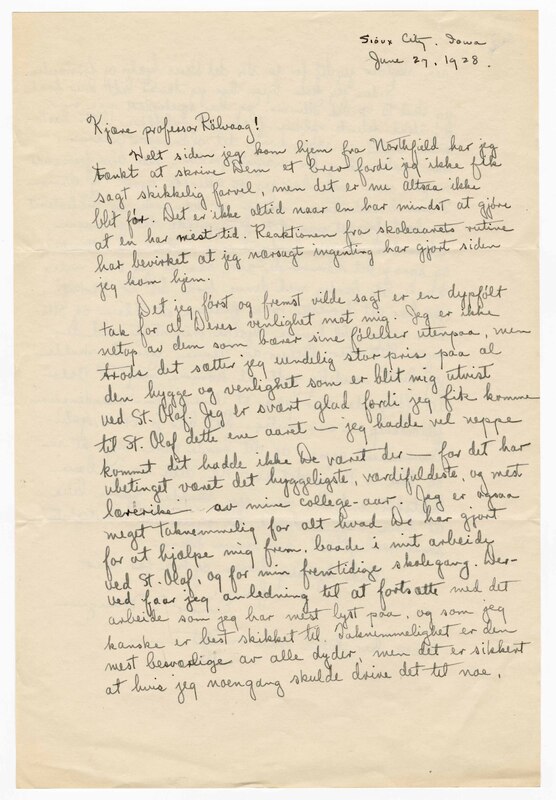 Sioux City, Iowa
June 27, 1928.
Kjære professor Rölvaag!
Helt siden jeg kom hjem fra Northfield har jeg
tænkt at skrive Dem et brev fordi jeg ikke fik
sagt skikkelig farvel, men det er nu altsaa ikke
blit før. Det er ikke altid naar en har mindst at gjøre
at en har mest tid. Reaktionen fra skoleaarets rutine
har bevirket at jeg nærsagt ingenting har gjort siden
jeg kom hjem.
Det jeg först og fremst vilde sagt er en dypfölt
tak for al Deres venlighet mot mig. Jeg er ikke
netop av dem som bærer sine følelser utenpaa, men
trods det sætter jeg uendelig stor pris paa al
den hygge og venlighet som er blit mig utvist
ved St. Olaf. Jeg er svært glad fordi jeg fik komme
til St. Olaf dette ene aaret — jeg hadde vel neppe
kommet dit hadde ikke De været der — for det har
ubetinget været det hyggeligste, værdifuldeste, og mest
lærerike av mine college-aar. Jeg er ogsaa
meget taknemmelig for alt hvad De har gjort
for at hjælpe mig frem, baade i mit arbeide
ved St. Olaf, og for min fremtidige skolegang. Der-
ved faar jeg anledning til at fortsætte med det
arbeide som jeg har mest lyst paa, og som jeg
kanske er best skikket til. Taknemmelighet er den
mest besværlige av alle dyder, men det er sikkert
at hvis jeg noengang skulde drive det til noe,